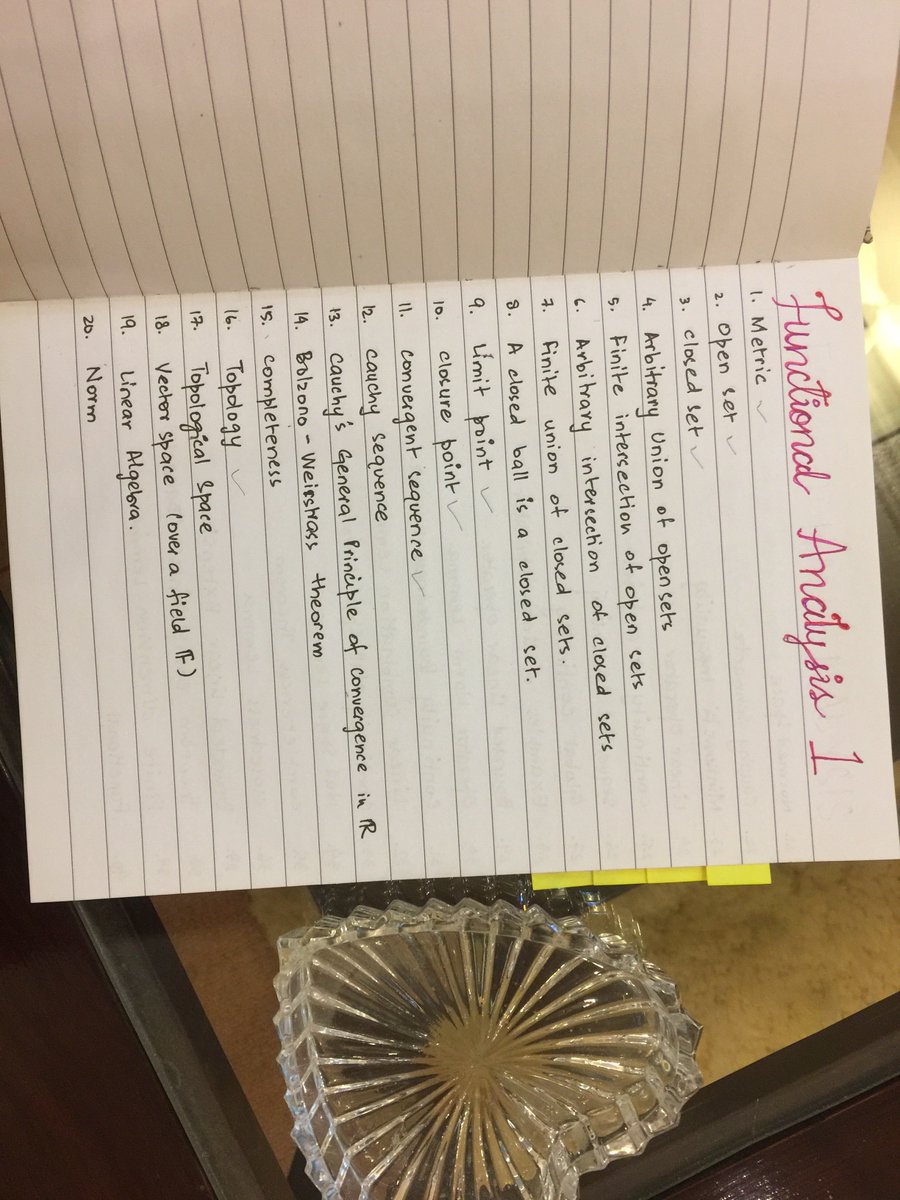 Functional Analysis 1
1. Metric ✓
2. Open set ✓
3. closed set ✓
4. Arbitrary Union of open sets
5. Finite intersection of open sets
6. Arbitrary intersection of closed sets
7. Finite union of closed sets.
8. A closed ball is a closed set.
9. Limit point ✓
10. closure point ✓
11. convergent sequence ✓
12. cauchy sequence
13. cauchy's General Principle of Convergence in ℝ
14. Bolzono - Weisstrass theorem
15. completeness
16. Topology ✓
17. Topological Space
18. Vector space (over a field 𝔽)
19. Linear Algebra.
20. Norm